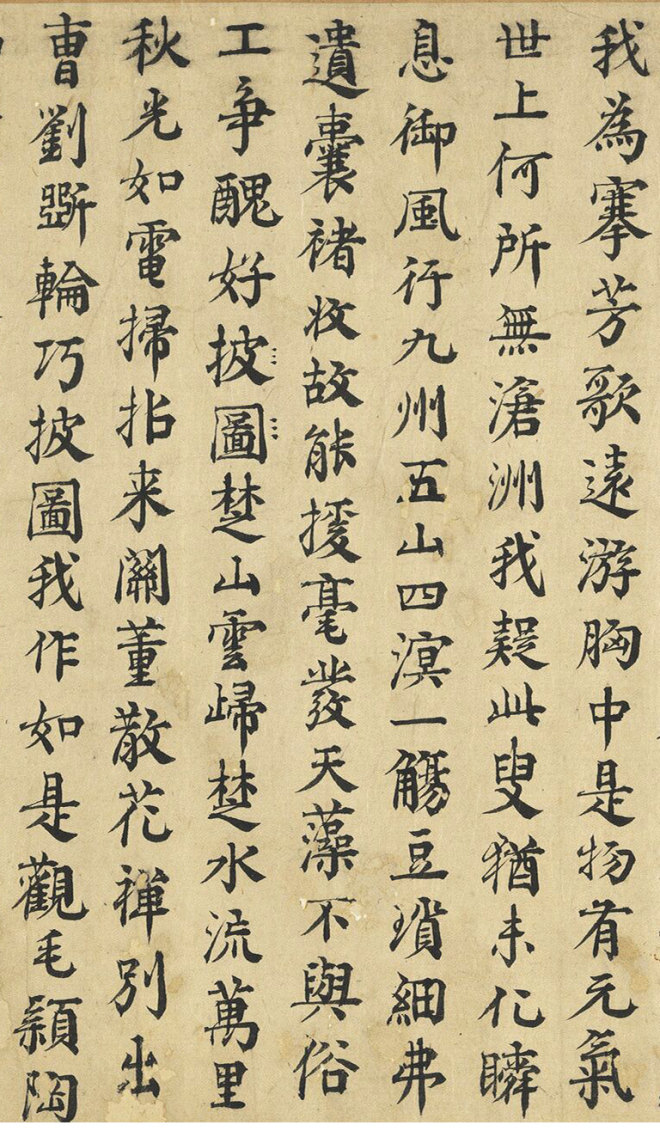 我為搴芳歌遠游胸中是物有元氣
世上何所無滄洲我疑此叟猶未化瞬
息御風行九州五山四溟一觴豆瑣細弗
遺囊褚收故能援毫發天藻不與俗
工爭醜好披圖楚山雲歸楚水流萬里
秋光如電掃拈来關董散花禪別出
曹劉斲輪巧披圖我作如是觀毛穎陶